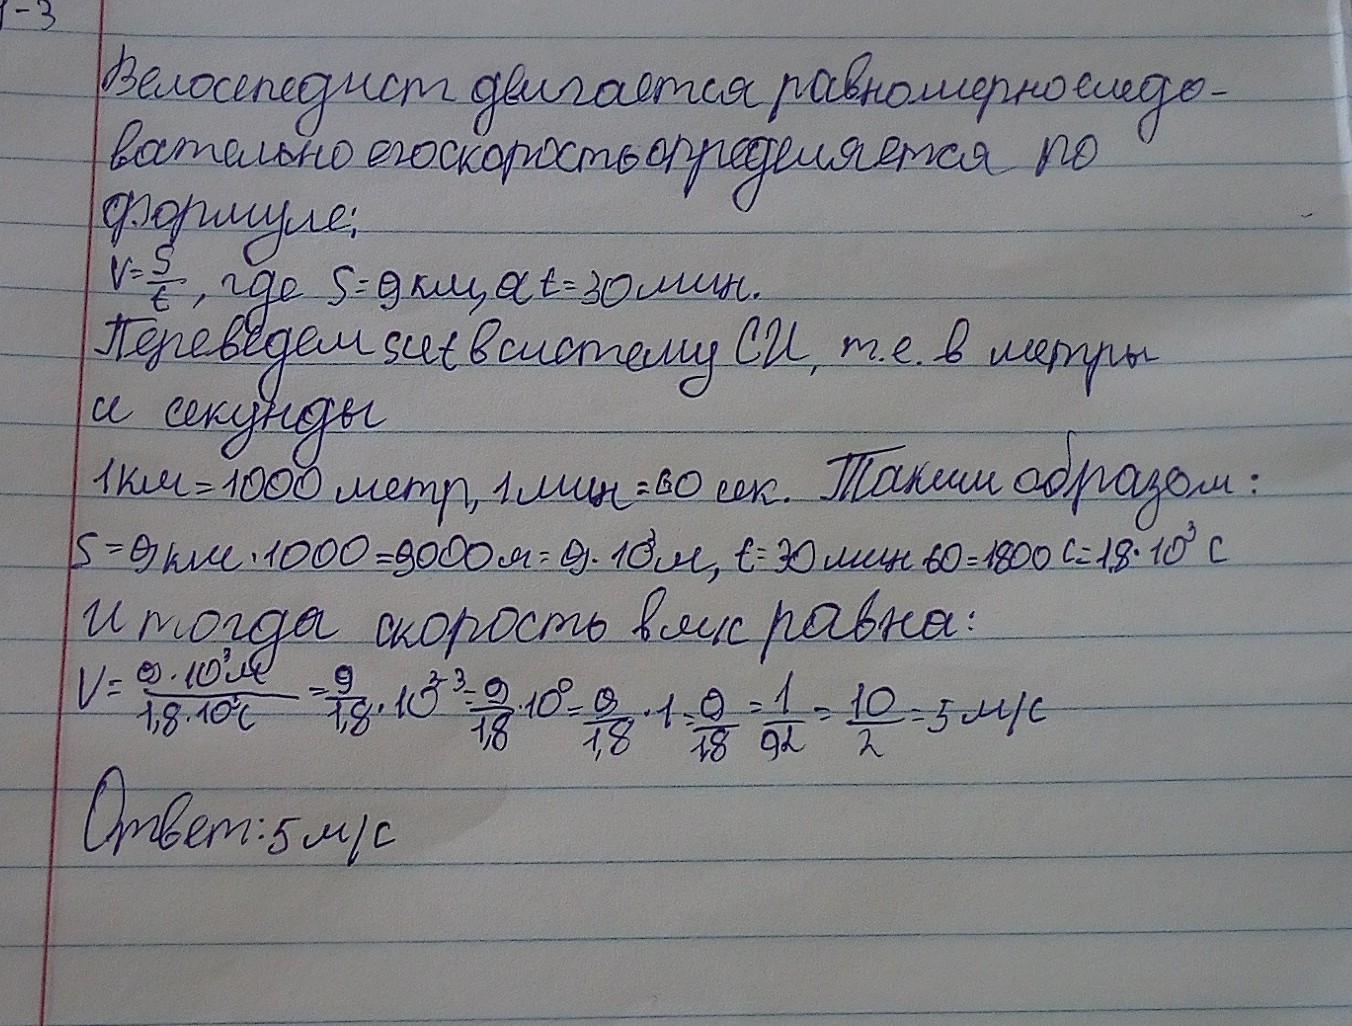 1-3
Велосепедист двигается равномерно следо-
вательно его скорость определяется по
формуле:
V=S/t, где S=9км, а t=30мин.
Переведем s и t в систему СИ, т.е. в метры
и секунды
1км=1000 метр, 1 мин=60 сек. Таким образом:
S=9км·1000=9000м=9·10³м, t=30мин 60=1800с=1,8·10³ с
И тогда скорость в м/с равна:
V=9·10³м/1,8·10³с=9/1,8·10³⁻³=9/1,8·10⁰=9/1,8·1=9/1,8=1/92=10/2=5 м/с
Ответ: 5 м/с